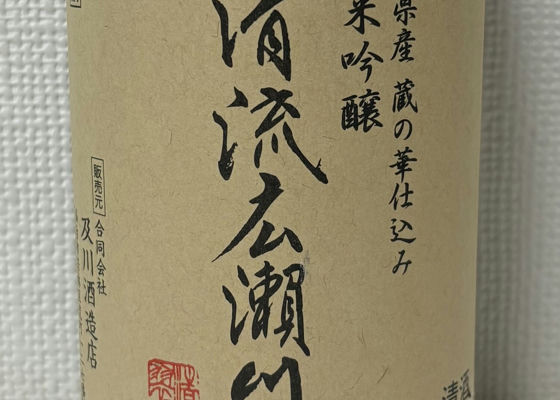 県産 蔵の華仕込み
米吟醸
清流広瀬川
販売元
合同会社
及川酒造店
清酒